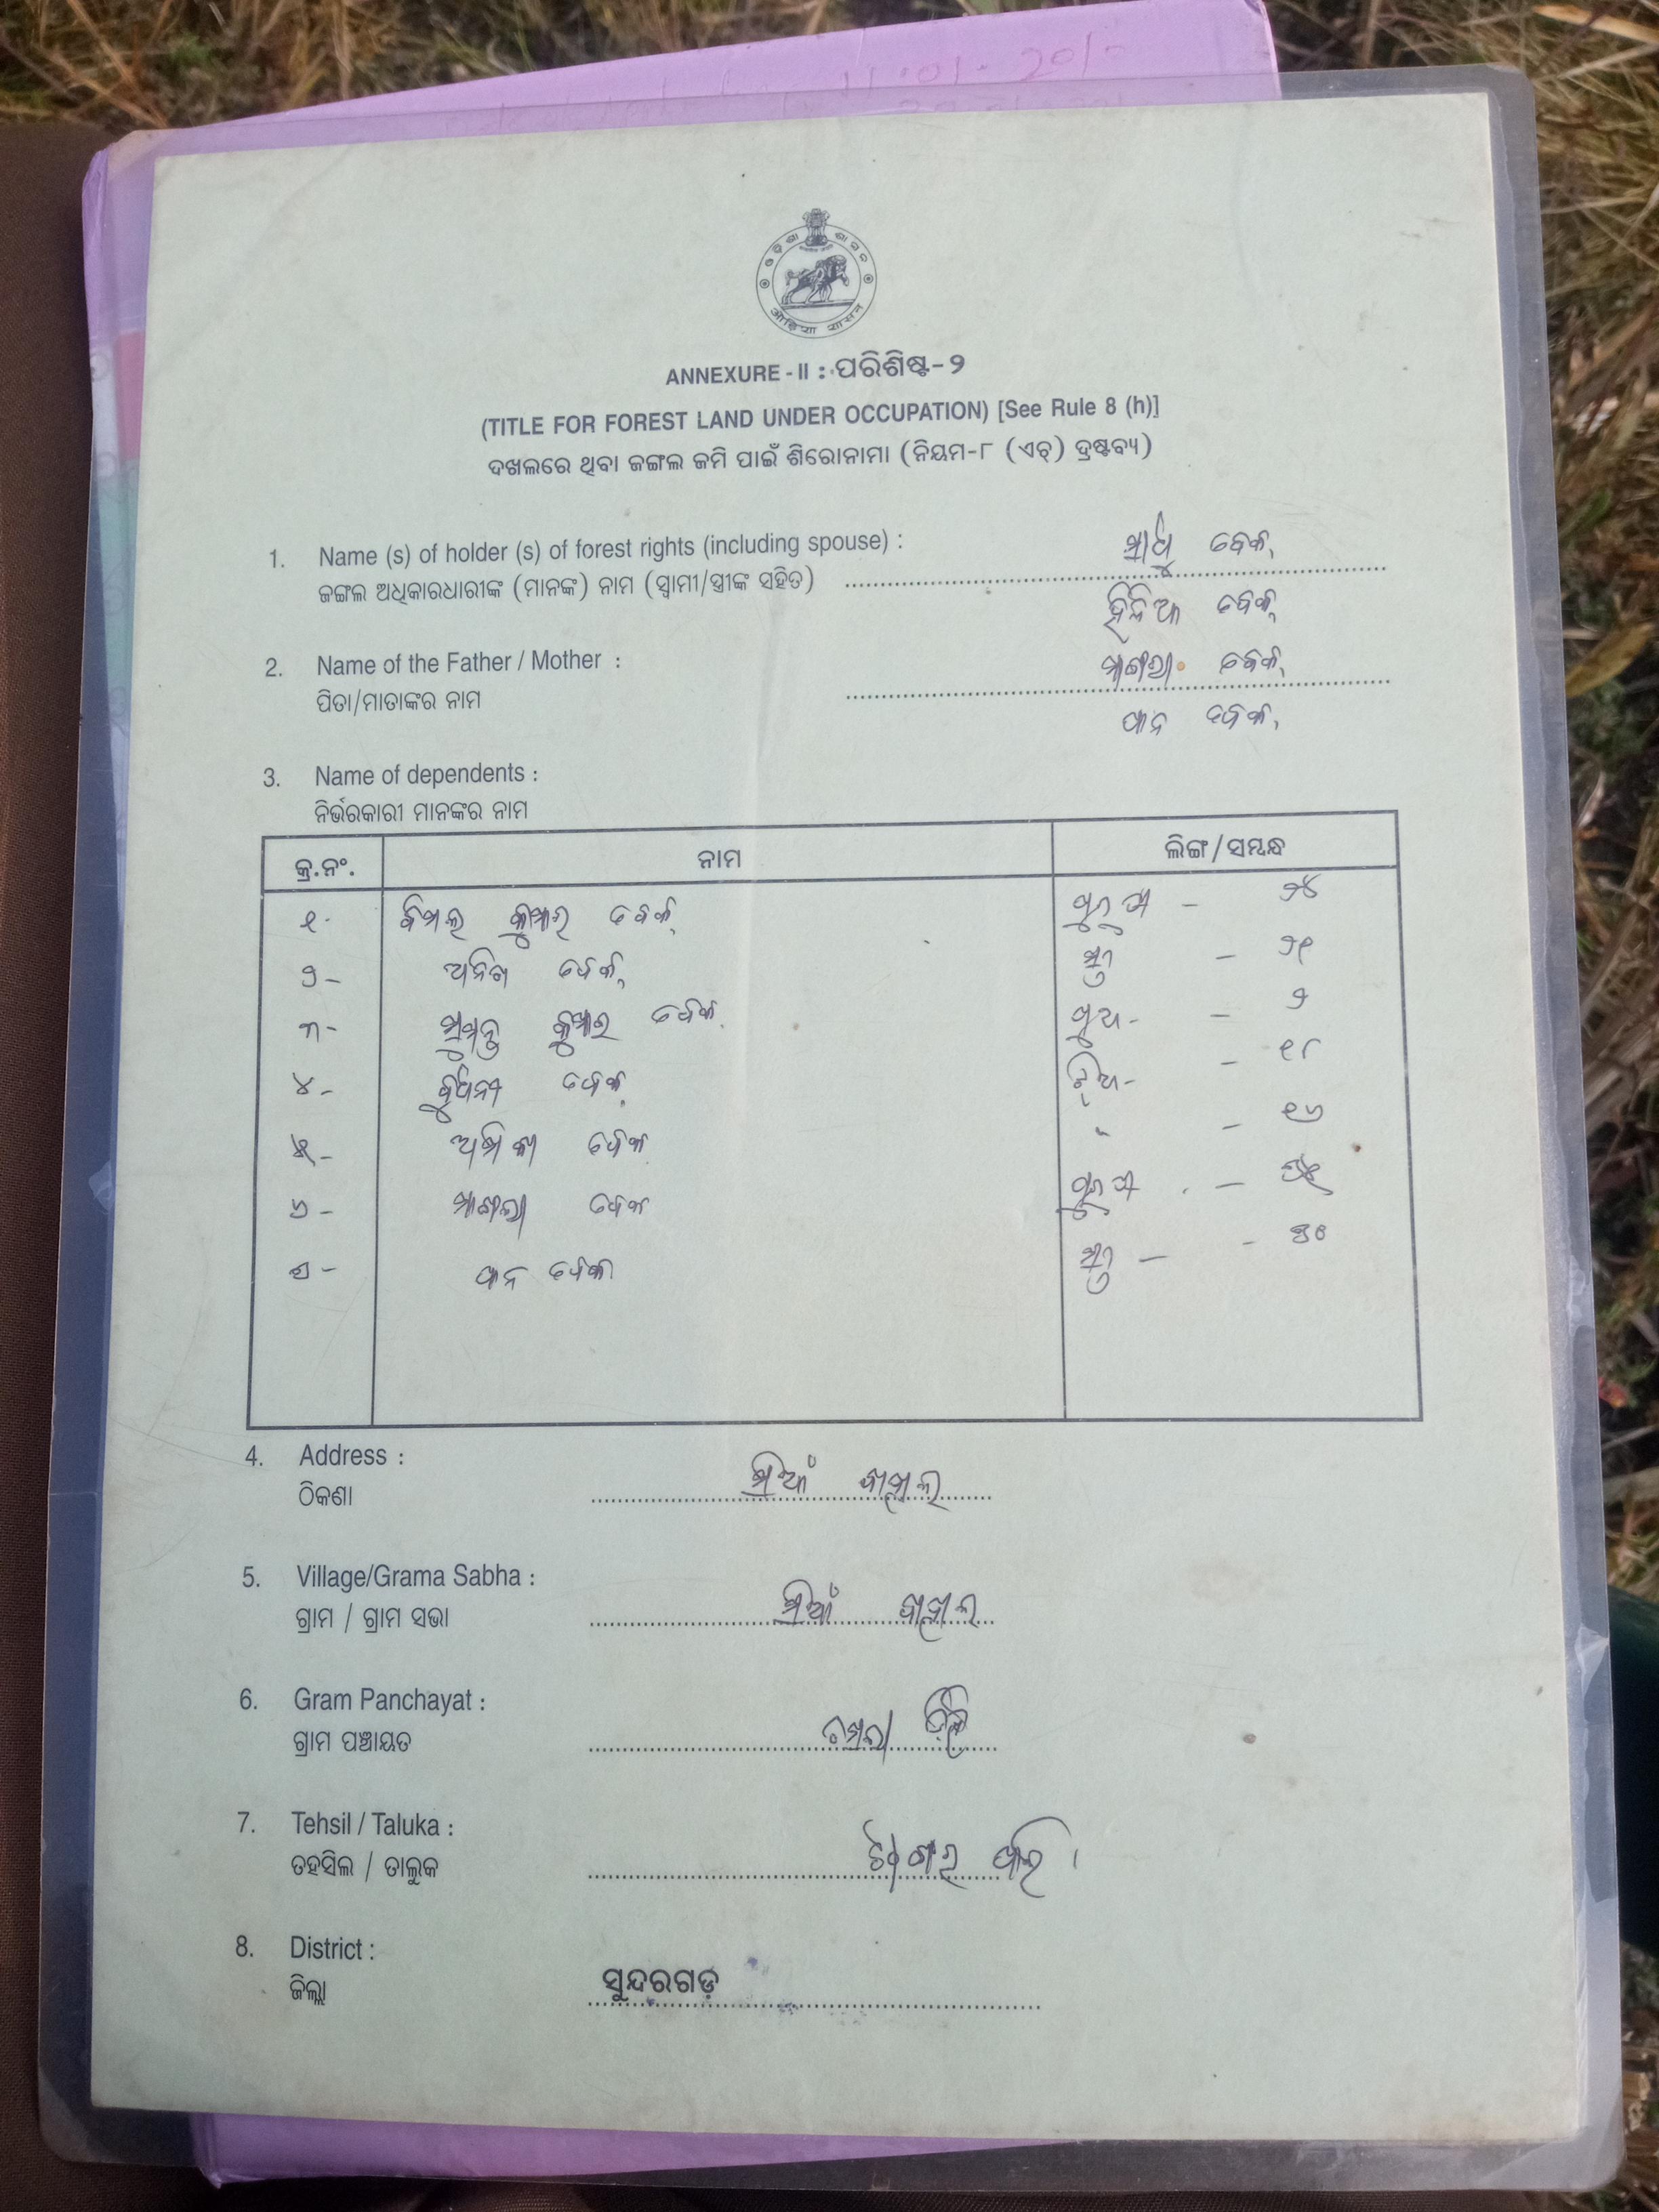 11.01.201
ଓଡ଼ିଶା ଶାସନ
ओड़िशा शासन
ANNEXURE - II : ପରିଶିଷ୍ଟ-୨
(TITLE FOR FOREST LAND UNDER OCCUPATION) [See Rule 8 (h)]
ଦଖଲରେ ଥିବା ଜଙ୍ଗଲ ଜମି ପାଇଁ ଶିରୋନାମା (ନିୟମ-୮ (ଏଚ୍) ଦ୍ରଷ୍ଟବ୍ୟ)
1. Name (s) of holder (s) of forest rights (including spouse) : ସାଧୁ ବେକ୍
ଜଙ୍ଗଲ ଅଧିକାରଧାରୀଙ୍କ (ମାନଙ୍କ) ନାମ (ସ୍ୱାମୀ/ସ୍ତ୍ରୀଙ୍କ ସହିତ)
ବେକ୍
2. Name of the Father / Mother : ବେକ୍
ପିତା/ମାତାଙ୍କର ନାମ
ପାନ ବେକ୍
3. Name of dependents :
ନିର୍ଭରକାରୀ ମାନଙ୍କର ନାମ
କ୍ର.ନଂ. ନାମ ଲିଙ୍ଗ/ସମ୍ବନ୍ଧ
୧- ବିମଲ କୁମାର ବେକ୍ ପୁରୁଷ - ୨୪
୨- ବେକ୍ ସ୍ତ୍ରୀ - ୨୧
୩- କୁମାର ବେକ୍ ପୁଅ - ୨
୪- ବୁଧନୀ ବେକ୍ ଝିଅ - ୧୮
୫- ବେକ୍ " - ୧୬
୬- ବେକ୍ ପୁରୁଷ -
୭- ପାନ ବେକ୍ ସ୍ତ୍ରୀ -
4. Address :
ଠିକଣା
5. Village/Grama Sabha :
ଗ୍ରାମ / ଗ୍ରାମ ସଭା
6. Gram Panchayat :
ଗ୍ରାମ ପଞ୍ଚାୟତ
7. Tehsil / Taluka : ଟାଙ୍ଗର ପାଲି
ତହସିଲ / ତାଲୁକ
8. District :
ଜିଲ୍ଲା ସୁନ୍ଦରଗଡ଼